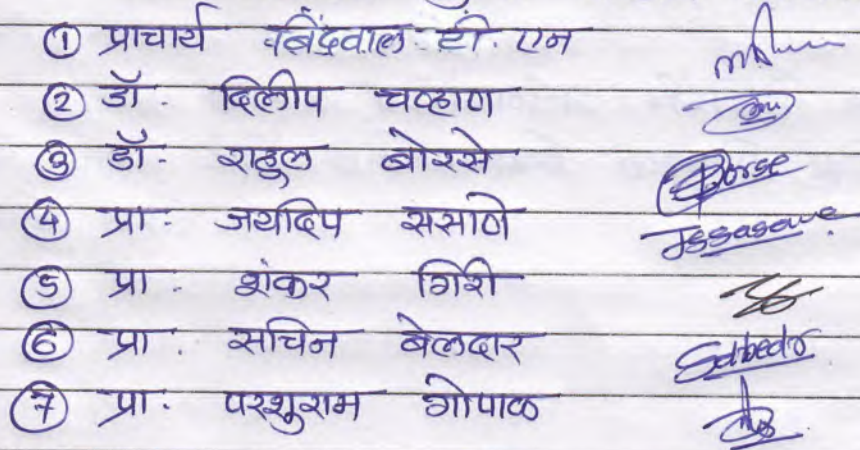 ① प्राचार्य बिंदवाल टी. एन
② डॉ. दिलीप चव्हाण
③ डॉ. राहुल बोरसे Borse
④ प्रा. जयदिप ससाणे Jssasane
⑤ प्रा. शंकर गिरी
⑥ प्रा. सचिन बेलदार
⑦ प्रा. परशुराम गोपाळ